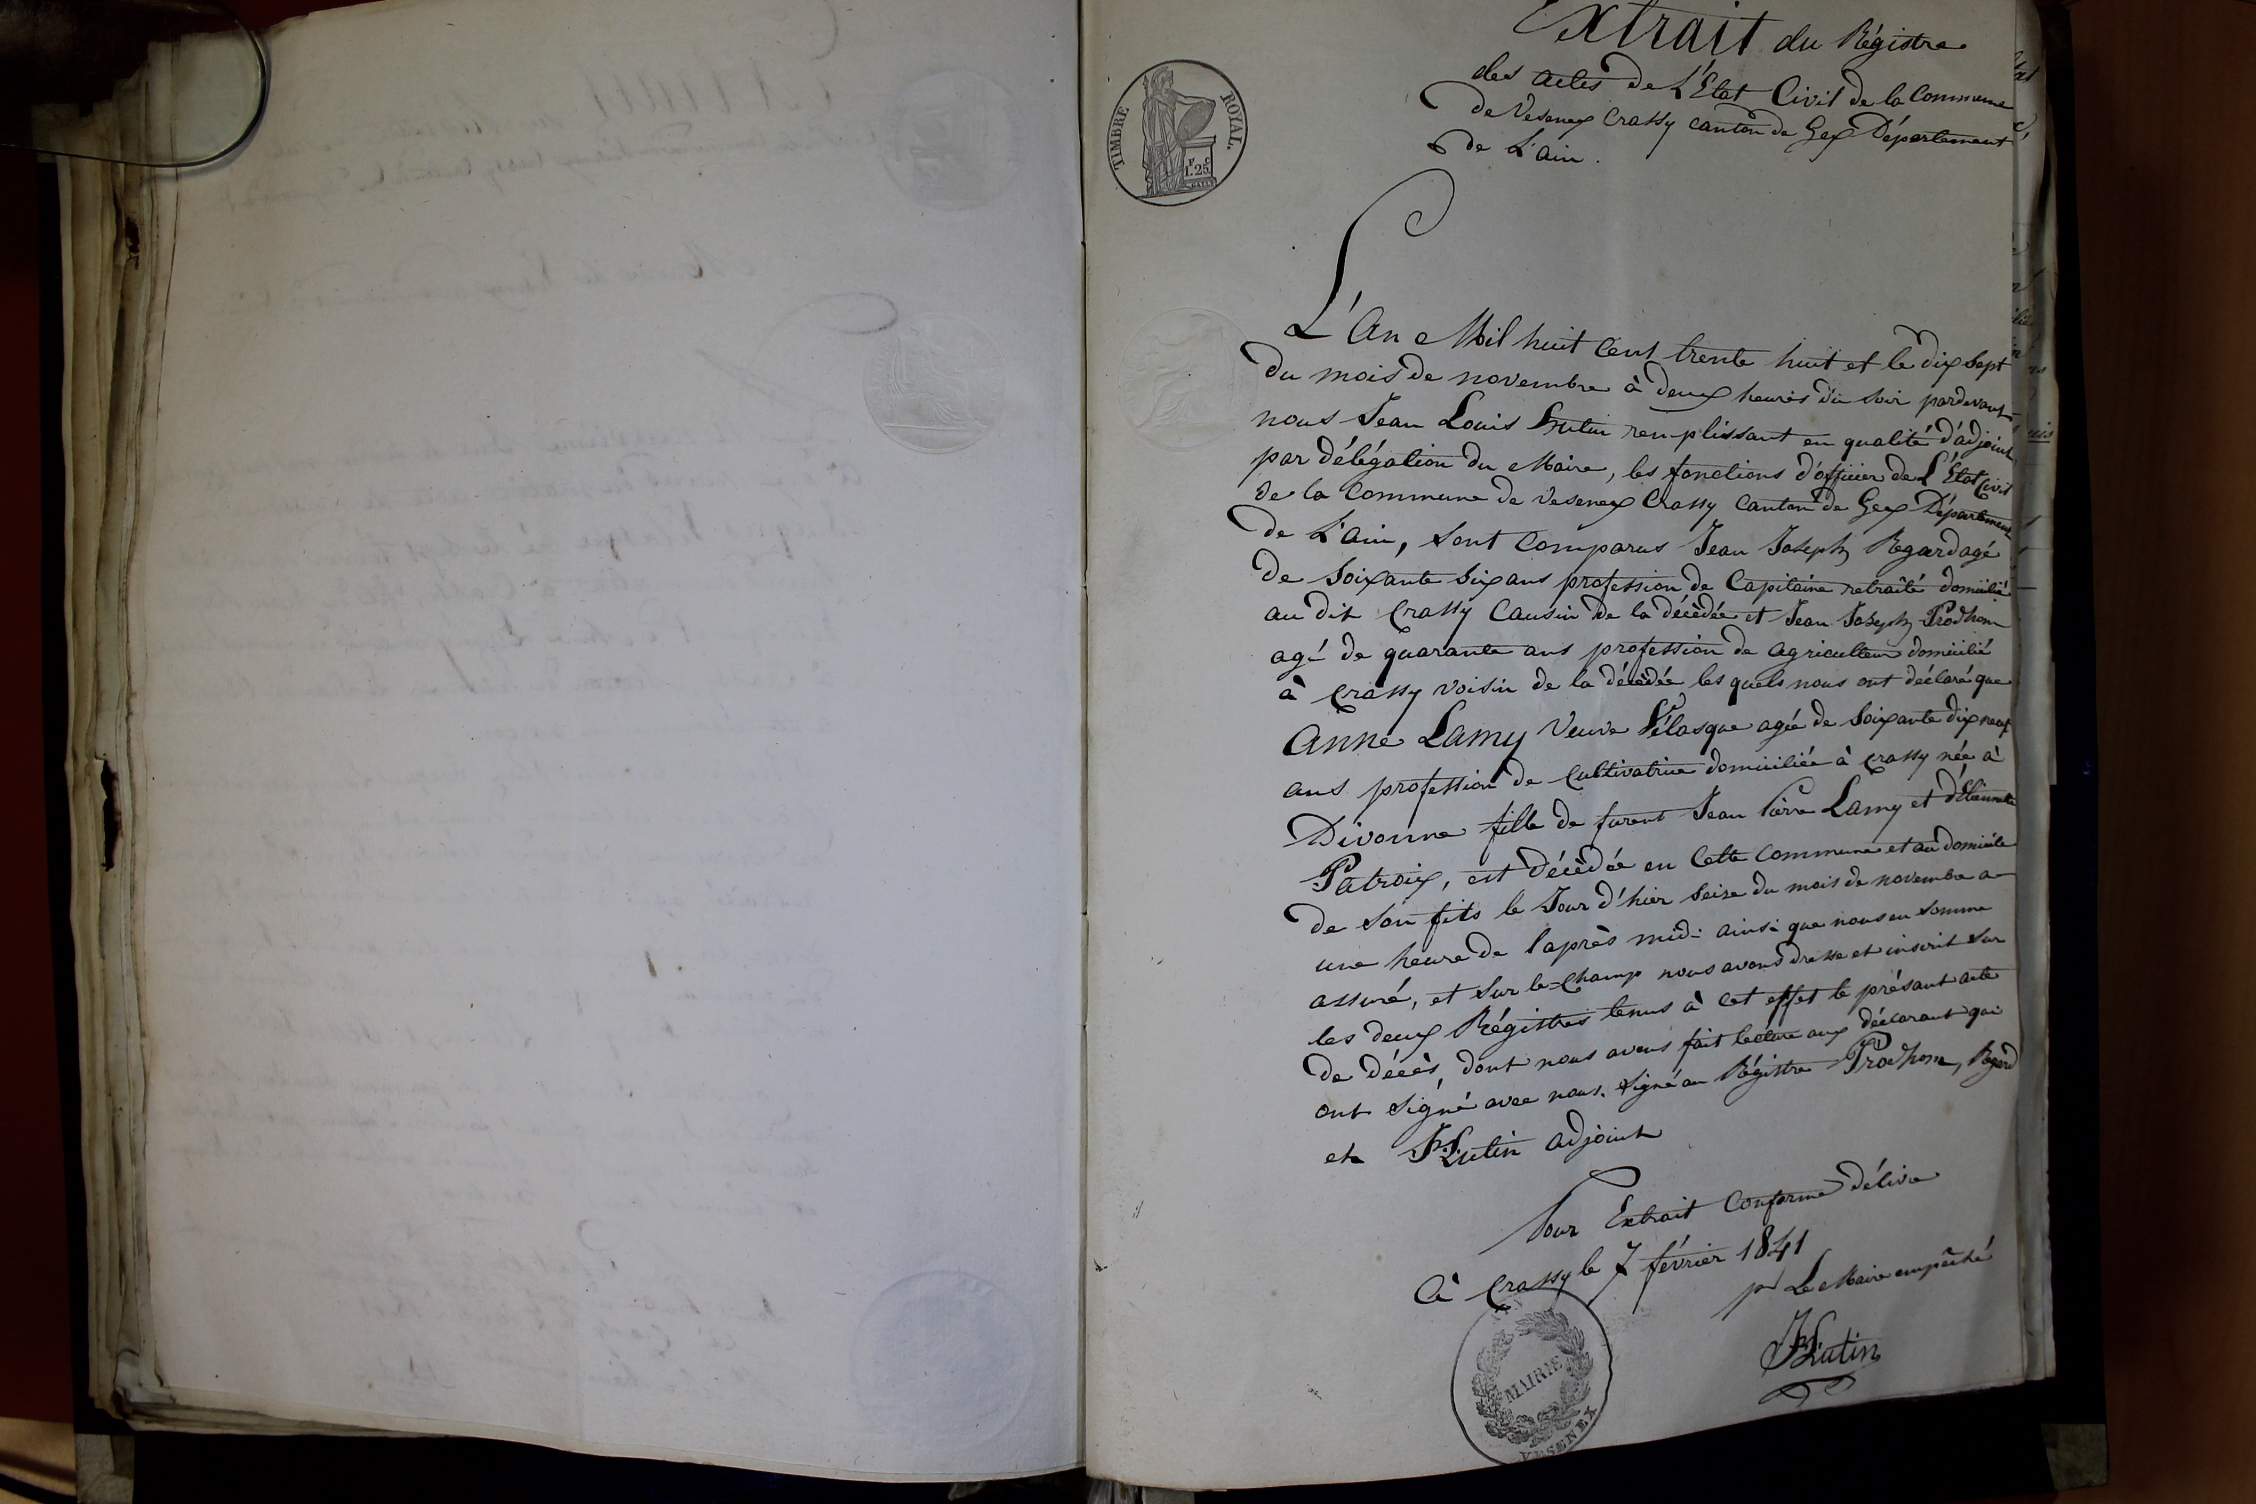 Extrait du Régistre
des actes de L'État Civil de la Commune
de Vesenex Crassy canton de Gex Département
de L'ain.
TIMBRE ROYAL.
F. C.
1.25
L'An Mil huit Cent trente huit et le dix sept
du mois de novembre à deux heures du soir pardevant
nous Jean Louis Hutin remplissant en qualité d'adjoint
par délégation du Maire, les fonctions d'officier de L'État Civil
de la Commune de Vesenex Crassy Canton de Gex Département
de L'ain, sont Comparus Jean Joseph Regard agé
de Soixante Six ans profession de Capitaine retraité domicilié
au dit Crassy Causin de la décèdée et Jean Joseph Prodhom
agé de quarante ans profession de agriculteur domicilié
à Crassy voisin de la décèdée les quels nous ont déclaré que
Anne Lamy Veuve Pélasque agée de Soixante dix neuf
ans profession de Cultivatrice domiciliée à Crassy née à
Divonne fille de furent Jean Pierre Lamy et d'Étiennette
Patroix, est décèdée en Cette Commune et au domicile
de son fils le Jour d'hier Seize du mois de novembre a
une heure de l'après midi ainsi que nous en somme
assuré, et Sur le=Champ nous avons dressé et inscrit Sur
les deux Régistres tenus à cet effet le présant acte
de décès, dont nous avons fait lecture aux déclarant qui
ont Signé avec nous. Signé au Régistre Prodhom, Regard
et JLHutin adjoint
Pour Extrait Conforme délivré
à Crassy le 7 février 1841
pr Le Maire empêché
JLHutin
MAIRIE
VESENEX